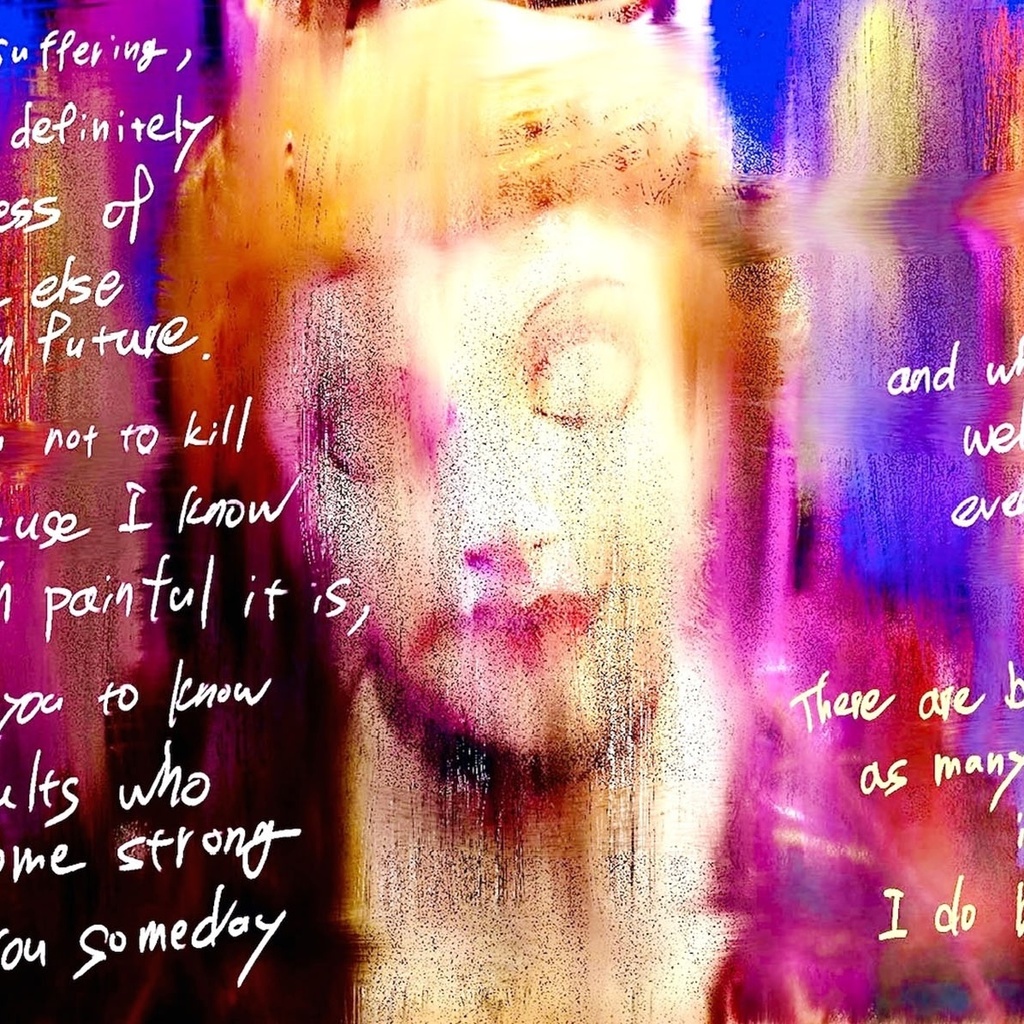 suffering,
definitely
ess of
else
future.
not to kill
I know
painful it is,
you to know
ults who
ome strong
you someday
and
There are
as many
I do